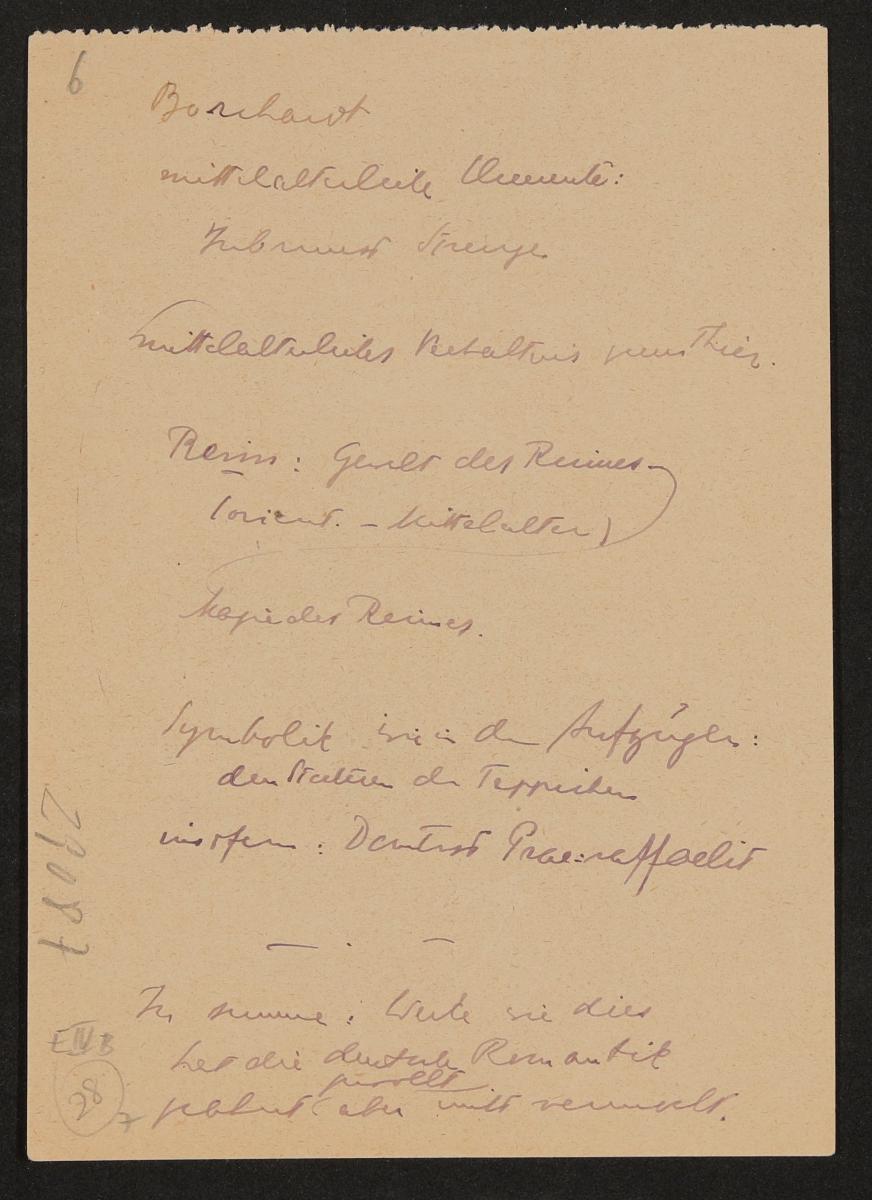 6
Borchardt
mittelalterliche Elemente:
Inbrunst Strenge
mittelalterliches Verhältnis zum Thier.
Reim: Gewalt des Reimes
(orient. – Mittelalter)
Magie des Reimes.
Symbolik wie in den Aufzügen:
den Statuen den Teppichen
insofern: Dantist Praeraffaelit
— . —
In summa: Werke wie dies
hat die deutsche Romantik
gewollt
geahnt aber nicht vermocht.
EIVB
28
7